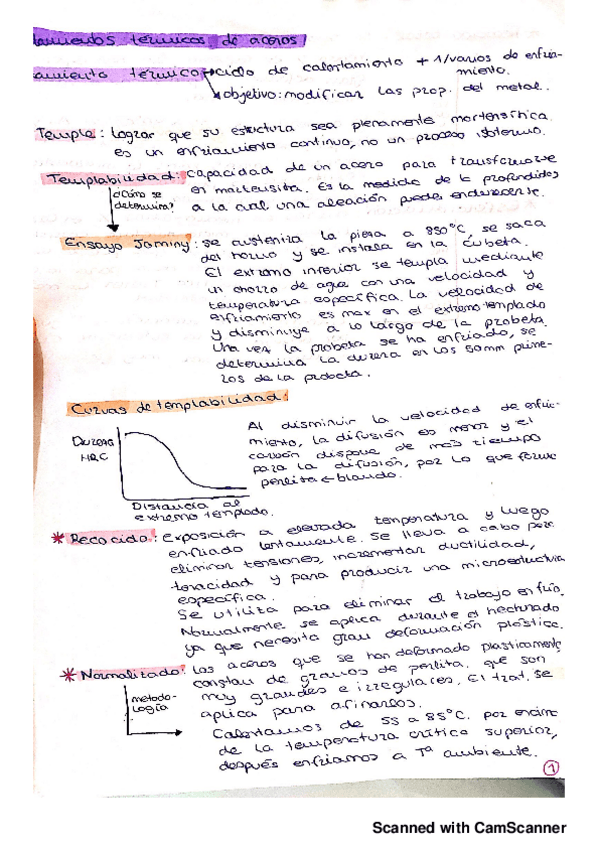 tamientos térmicos de aceros
amiento térmico → ciclo de calentamiento + 1/varios de enfria-
miento.
objetivo: modificar las prop. del metal.
Temple: lograr que su estructura sea plenamente martensítica
es un enfriamiento continuo, no un proceso isotermo.
Templabilidad: capacidad de un acero para transformarse
en martensita. Es la medida de la profundidad
a la cual una aleación puede endurecerse.
¿Cómo se
determina?
Ensayo Jominy: se austeniza la pieza a 850°C, se saca
del horno y se instala en la cubeta.
El extremo inferior se templa mediante
un chorro de agua con una velocidad y
temperatura específica. La velocidad de
enfriamiento es max en el extremo templado
y disminuye a lo largo de la probeta.
Una vez la probeta se ha enfriado, se
determina la dureza en los 50mm prime-
ros de la probeta.
Curvas de templabilidad:
Dureza
HRC
Distancia al
extremo templado.
Al disminuir la velocidad de enfria-
miento, la difusión es menor y el
carbón dispone de más tiempo
para la difusión, por lo que forma
perlita ← blando.
* Recocido: Exposición a elevada temperatura y luego
enfriado lentamente. Se lleva a cabo para
eliminar tensiones, incrementar ductilidad,
tenacidad y para producir una microestructura
específica.
Se utiliza para eliminar el trabajo en frío.
Normalmente se aplica durante el hechurado
ya que necesita gran deformación plástica.
* Normalizado: los aceros que se han deformado plasticamente
constan de granos de perlita, que son
muy grandes e irregulares. El trat. se
aplica para afinarlos.
metodo-
logía
Calentamos de 55 a 85°C. por encima
de la temperatura crítica superior,
después enfriamos a Tª ambiente.
1
Scanned with CamScanner